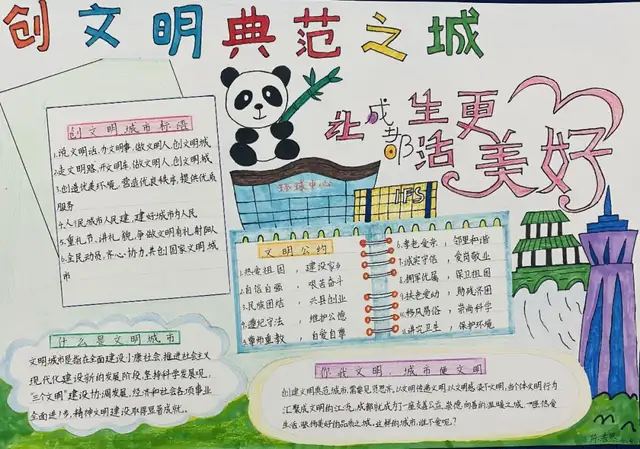 创文明典范之城
让成都生活更美好
创文明城市标语
1.说文明话,办文明事,做文明人,创文明城
2.走文明路,开文明车,做文明人,创文明城
3.创造优美环境,营造优良秩序,提供优质
服务
4.人民城市人民建,建好城市为人民
5.重礼节,讲礼貌,争做文明有礼射阳人
6.全民动员,齐心协力,共创国家文明城
市
环球中心
IFS
文明公约
1.热爱祖国,建设家乡
2.自信自强,艰苦奋斗
3.民族团结,兴县创业
4.遵纪守法,维护公德
5.尊师重教,自爱自尊
6.孝老爱亲,邻里和谐
7.诚实守信,爱岗敬业
8.拥军优属,保卫祖国
9.扶危爱幼,助残济困
10.移风易俗,崇尚科学
11.讲究卫生,保护环境
什么是文明城市
文明城市是指在全面建设小康社会,推进社会主义
现代化建设新的发展阶段,坚持科学发展观,
"三个文明"建设协调发展,经济和社会各项事业
全面进步,精神文明建设取得显著成就。
你我文明,城市便文明
创建文明典范城市,需要见贤思齐,以文明传递文明,以文明感染文明,当个体文明行为
汇聚成文明的江流,成都就成为了一座友善公益、崇德向善的温暖之城,
生活、装饰美好的品质之城。这样的城市,谁不爱呢?